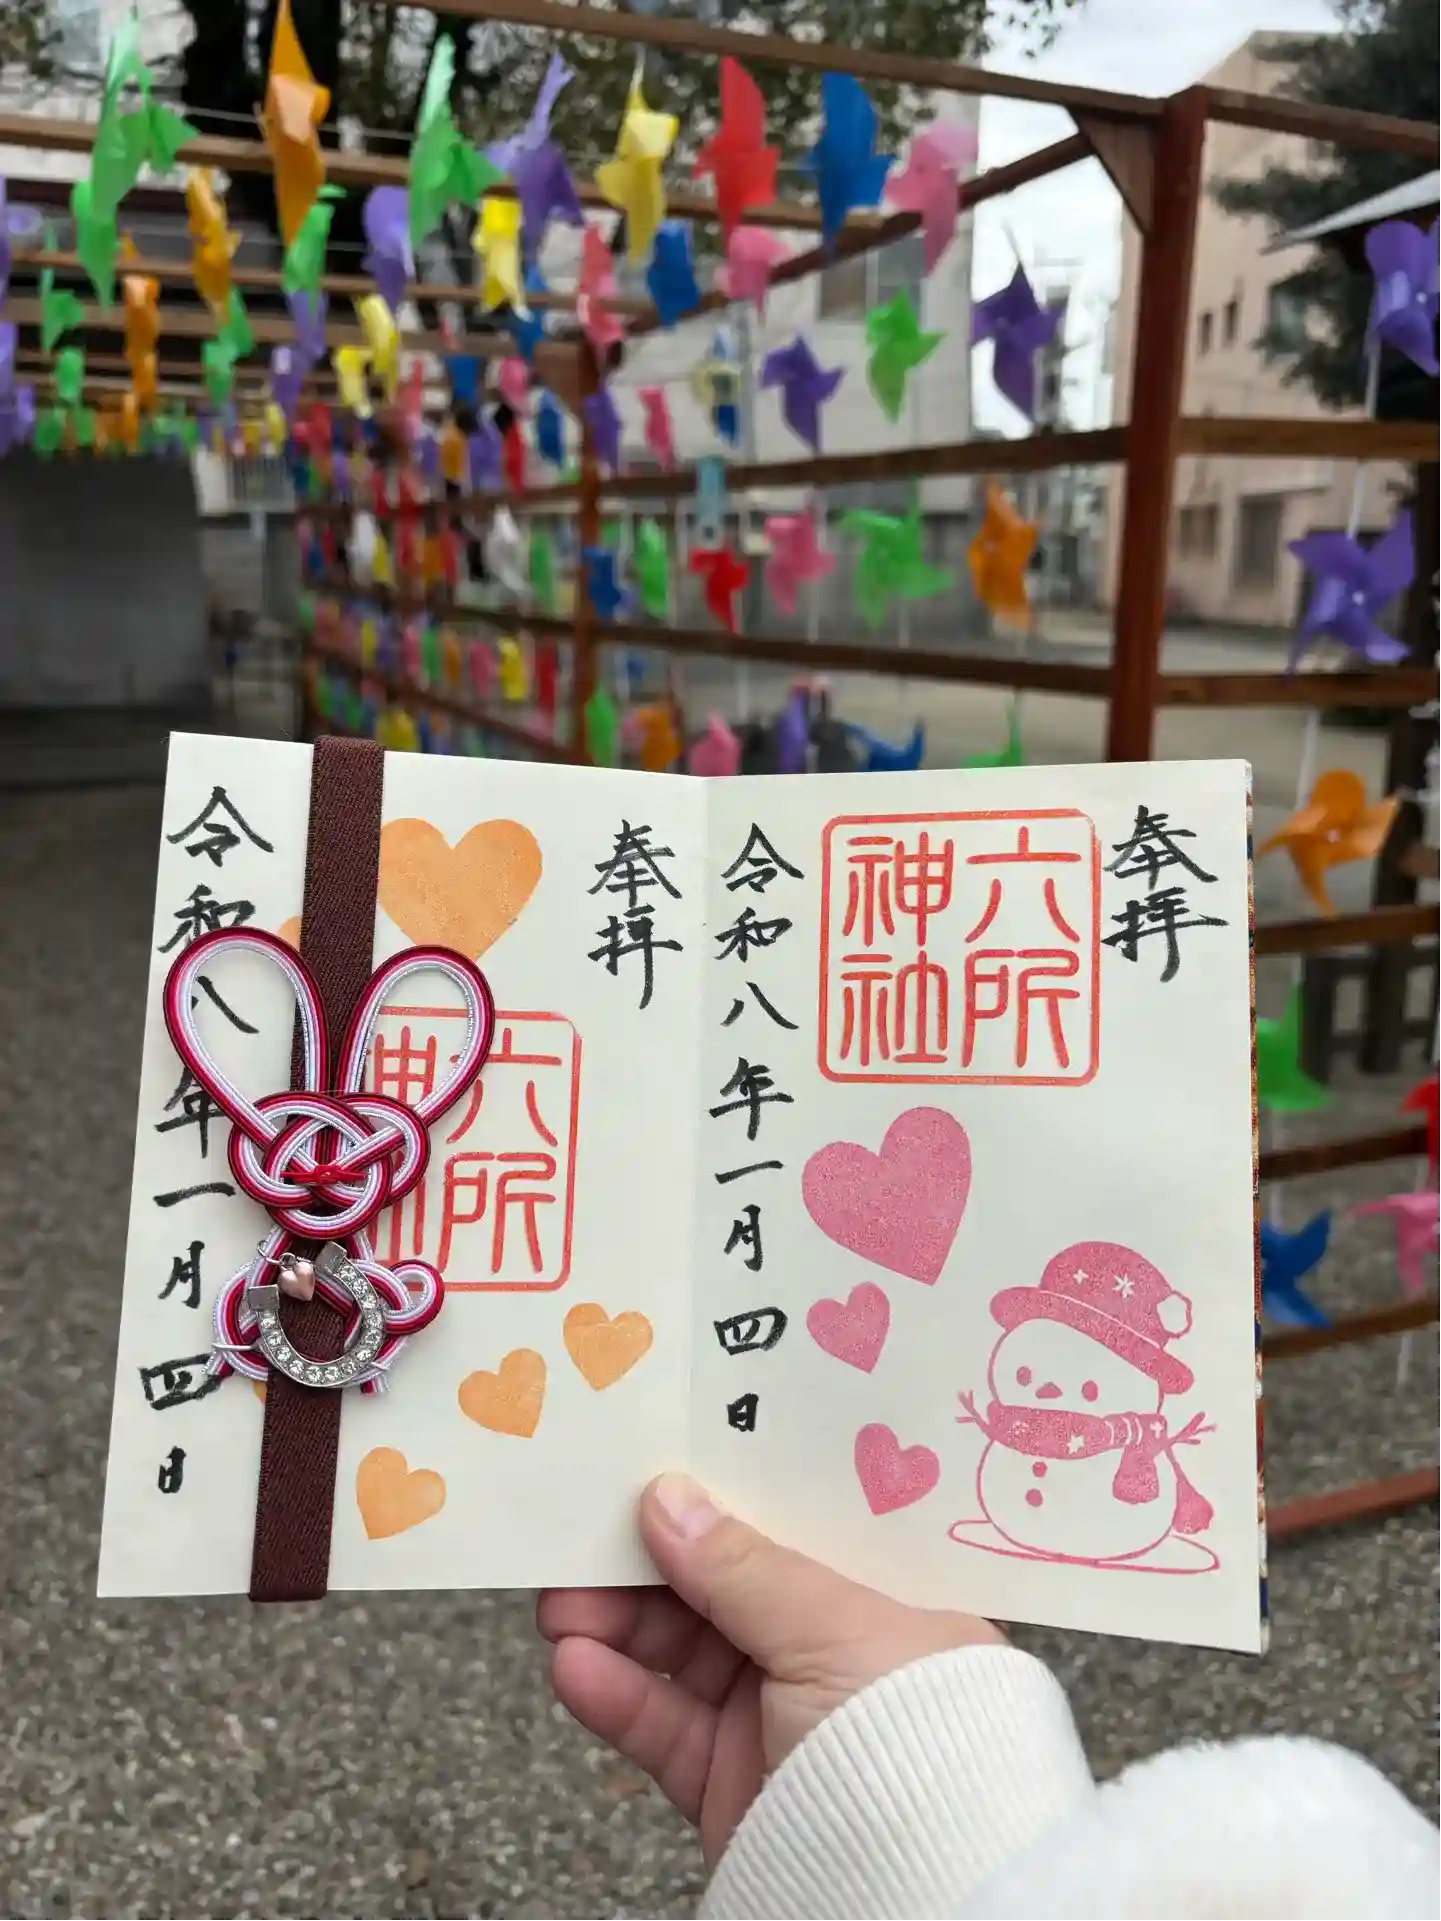 奉拝
六所
神社
令和八年一月四日
奉拝
六所
神
令和八年一月四日